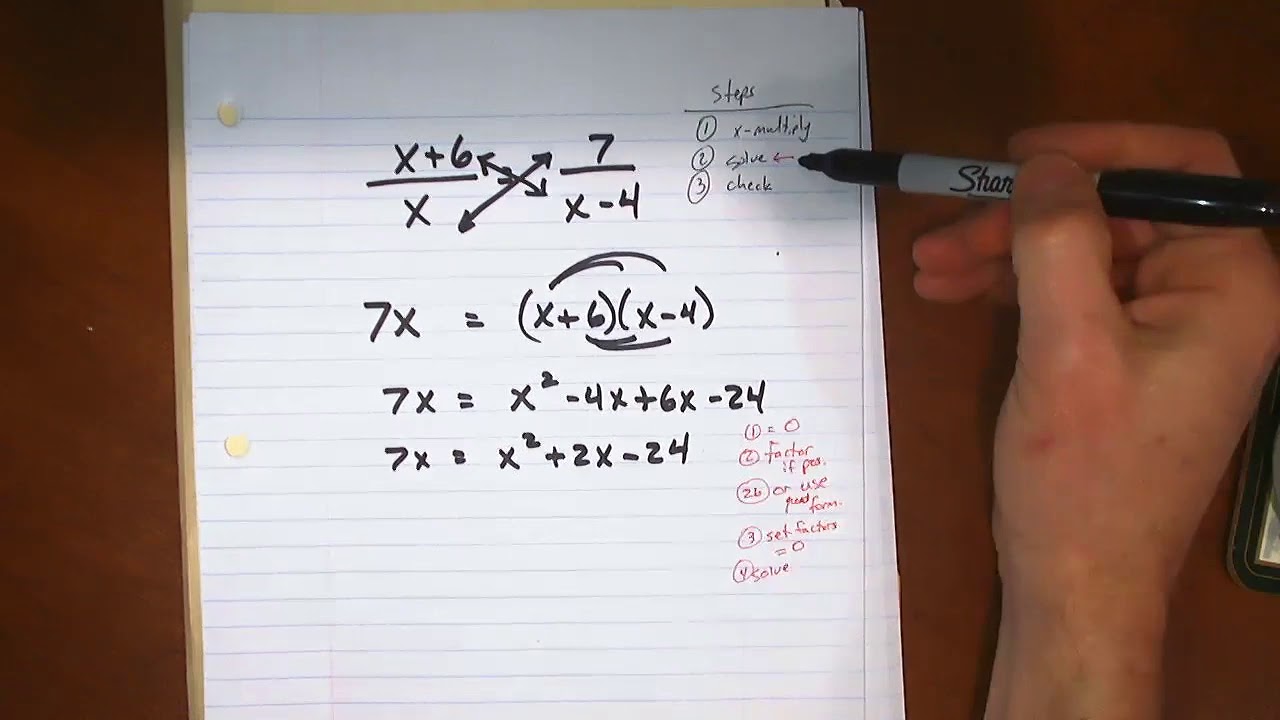 Steps
① x-multiply
② solve ←
③ check
x+6 7
x x-4
7x = (x+6)(x-4)
7x = x² -4x+6x-24
7x = x²+2x-24
① = 0
② factor
if pos.
②b or use
quad
form.
③ set factors
= 0
④ solve
Shar